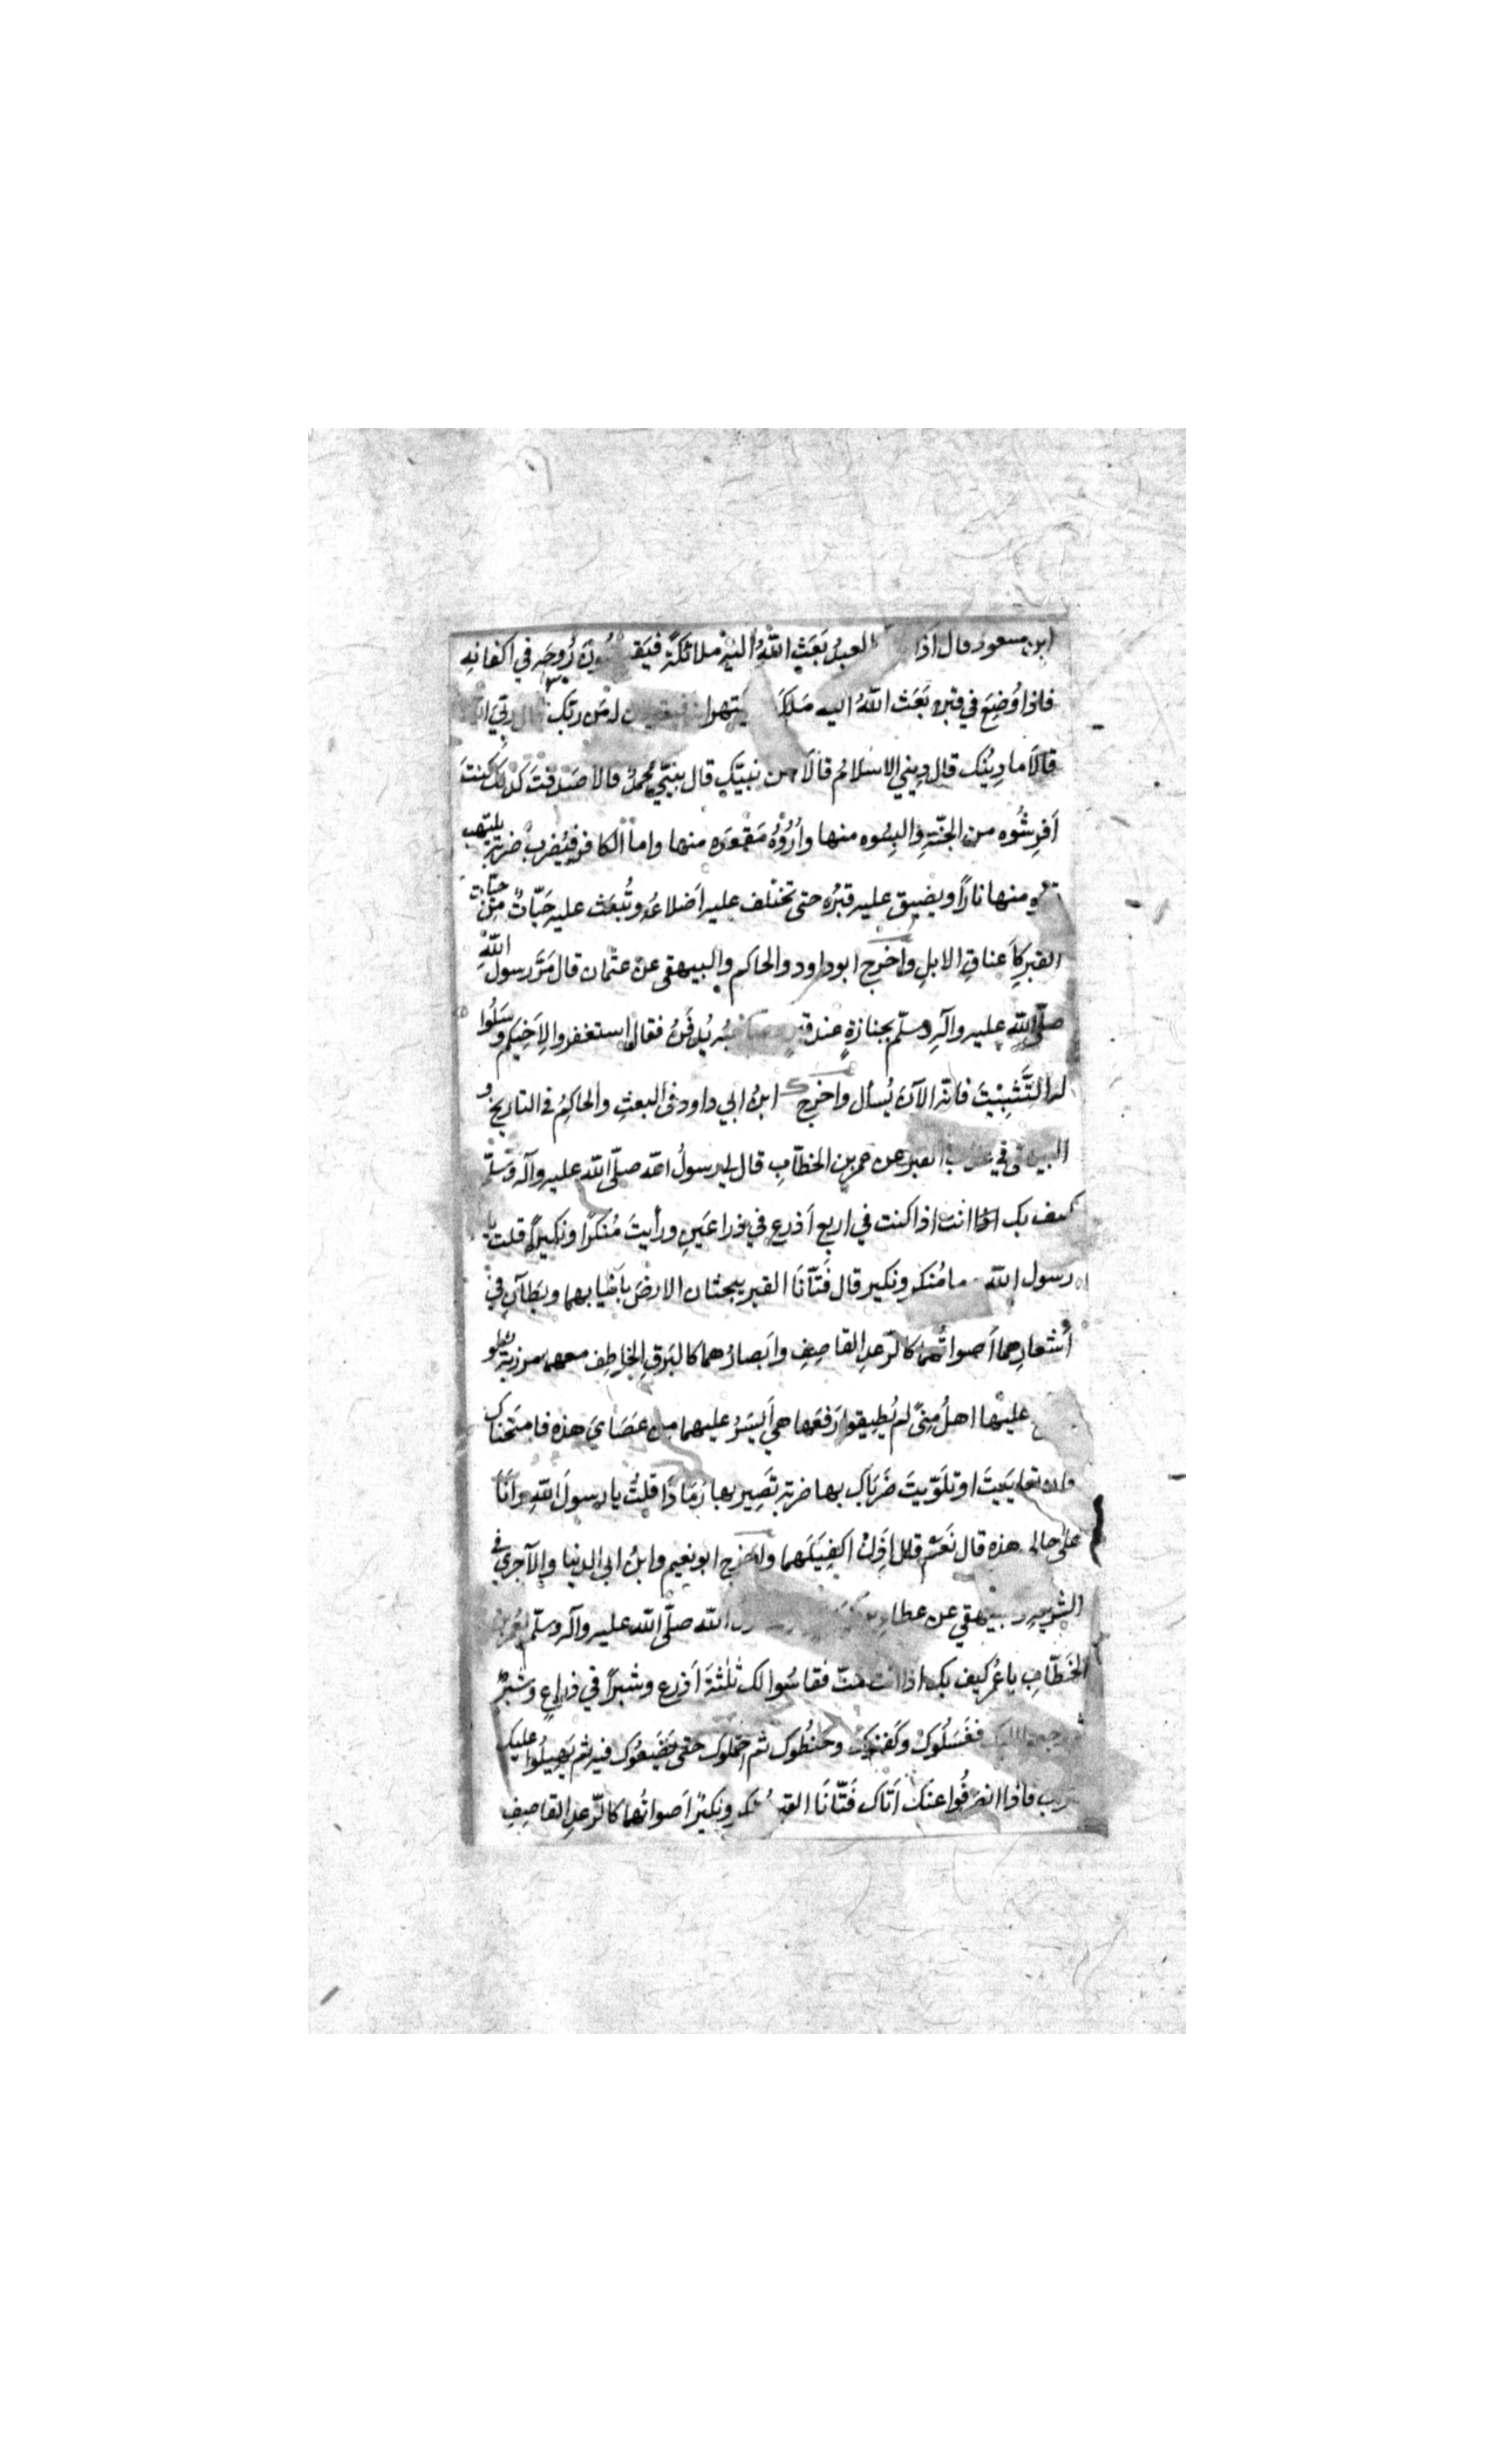 ابن مسعود قال اَذا العبدُ بَعَثَ اللّٰهُ اليْهِ ملائكةً رُوحَه في اكفانِه
فاذا وُضِعَ في قبرِه بَعَث اللّٰهُ اليه مَلَكَ مَن ربّك رَبّيَ
قالاَ ما دِينُك قال دِيني الاسلامُ قالاَ من نبيّك قال نبيّي محمّدٌ قالا صَدقتَ كذلك كنتَ
اَفرِشُوه من الجنّةِ والبِسُوه منها واَرُوْهُ مَقعَدَه منها واما الكافر فيُضرَبُ ضربةً يلتهب
منها نارًا ويضيق عليه قبرُه حتى تختلف عليه اَضلاعُه وتُبعَث عليه حَيّاتٌ من حيّات
القبرِ كاَعناقِ الابلِ واَخرَج ابو داود والحاكم والبيهقي عن عثمان قال مَرَّ رسول اللّٰهِ
صلّى اللّٰه عليه وآلِه وسلّم بجنازةٍ عند قبرٍ يُدفَنُ فقال استغفروا لِاَخِيكم وسَلُوا
له التَّثبِيْتَ فانّه الآنَ يُسأل واَخرج ابنُ ابي داود في البعثِ والحاكِمُ في التاريخِ و
البيهقي في القبر عن عمر بن الخطّابِ قال لي رسولُ اللّه صلّى اللّٰه عليه وآله وسلّم
كيف بك انت اذا كنت في اربعِ اَذرعٍ في ذراعَينِ ورأيتَ مُنكرًا ونكيرًا قلت يا
رسول اللّٰه ما مُنكر ونكير قال فَتّانَا القبر يبحثان الارضَ بأنيابهما ويَطآنِ في
اَشعارِهما اَصواتُهما كالرّعدِ القاصِفِ واَبصارُهما كالبَرقِ الخاطِف معهما مرزبة لو
عليها اهلُ مِنىً لم يُطِيقوا رَفعَها هي اَيسَرُ عليهما من عَصَايَ هذه فامتَحَناك
فان تعايَيتَ او تلَوّيتَ ضَرَباك بها ضربة تَصِير بها رَمادًا قلتُ يا رسولَ اللّٰهِ وانَا
علىٰ حالي هذه قال نَعَمْ قلت اِذنْ اَكفِيَكَهما واَخرَج ابو نعيم وابنُ ابي الدنيا والآجري في
الشريعه والبيهقي عن عطاء بن اللّٰه صلّى اللّٰه عليه وآله وسلّم لعُمرَ بن
الخَطّابِ يا عُمر كيف بك اذا انت متّ فقاسُوا لك ثلٰثةَ اَذرعٍ وشبرًا في ذراعٍ وشبرٍ
ثم رجعوا اليك فغَسَلُوكَ وكَفنوكَ وحَنطُوك ثم احتملوك حتى يَضَعُوك فيه ثم يَهِيلُوا عليك
فاذا انصرفُوا عنك اَتاك فَتّانَا القبر منكر ونكيرٌ اَصواتُهما كالرّعدِ القاصِفِ